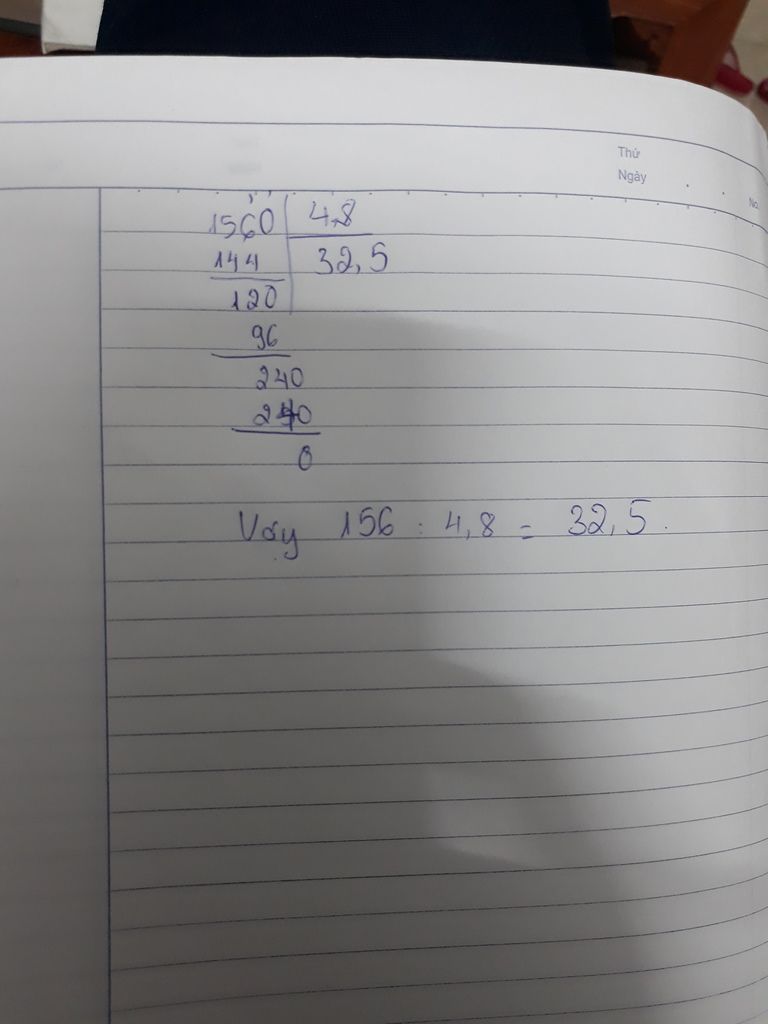 Thứ
Ngày
No
1560 4,8
144 32,5
120
96
240
240
0
Vậy 156 : 4,8 = 32,5.